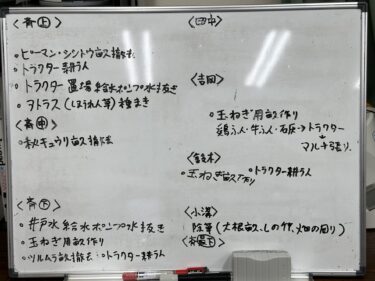 <斉㊤>
○ピーマン・シントウ畝撤去
○トラクター耕うん
○トラクター置場給水ポンプ水抜き
○アトラス(ほうれん草)種まき
<斉㊥>
○秋キュウリ畝撤去
<斉㊦>
○井戸水給水ポンプ水抜き
○玉ねぎ用畝作り
○ツルムラ畝撤去 ○トラクター耕うん
<田中>
<吉田>
○玉ねぎ用畝作り
鶏ふん・牛ふん・石灰→トラクター
マルチ張り
<鈴木>
○玉ねぎ畝作り ○トラクター耕うん
<小溝>
除草(大根畝、しの竹、畑の周り)